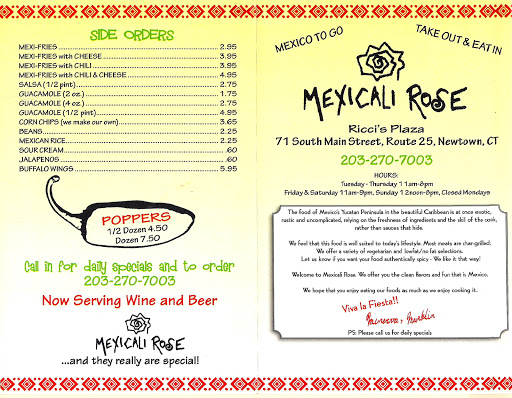 SIDE ORDERS
MEXI-FRIES 2.95
MEXI-FRIES with CHEESE 3.95
MEXI-FRIES with CHILI 3.95
MEXI-FRIES with CHILI & CHEESE 4.95
SALSA (1/2 pint) 2.75
GUACAMOLE (2 oz.) 1.75
GUACAMOLE (4 oz.) 2.75
GUACAMOLE (1/2 pint) 4.95
CORN CHIPS (we make our own) 3.65
BEANS 2.25
MEXICAN RICE 2.25
SOUR CREAM .60
JALAPENOS .60
BUFFALO WINGS 5.95
POPPERS
1/2 Dozen 4.50
Dozen 7.50
Call in for daily specials and to order
203-270-7003
Now Serving Wine and Beer
MEXICALI ROSE
...and they really are special!
MEXICO TO GO
TAKE OUT & EAT IN
MEXICALI ROSE
Ricci's Plaza
71 South Main Street, Route 25, Newtown, CT
203-270-7003
HOURS:
Tuesday - Thursday 11am-8pm
Friday & Saturday 11am-9pm, Sunday 12noon-8pm, Closed Mondays
The food of Mexico's Yucatan Peninsula in the beautiful Caribbean is at once exotic,
rustic and uncomplicated, relying on the freshness of ingredients and the skill of the cook,
rather than sauces that hide.
We feel that this food is well suited to today's lifestyle. Most meats are char-grilled.
We offer a variety of vegetarian and lowfat/no fat selections.
Let us know if you want your food authentically spicy - We like it that way!
Welcome to Mexicali Rose. We offer you the clean flavors and fun that is Mexico.
We hope that you enjoy eating our foods as much as we enjoy cooking it.
Viva la Fiesta!!
PS: Please call us for daily specials